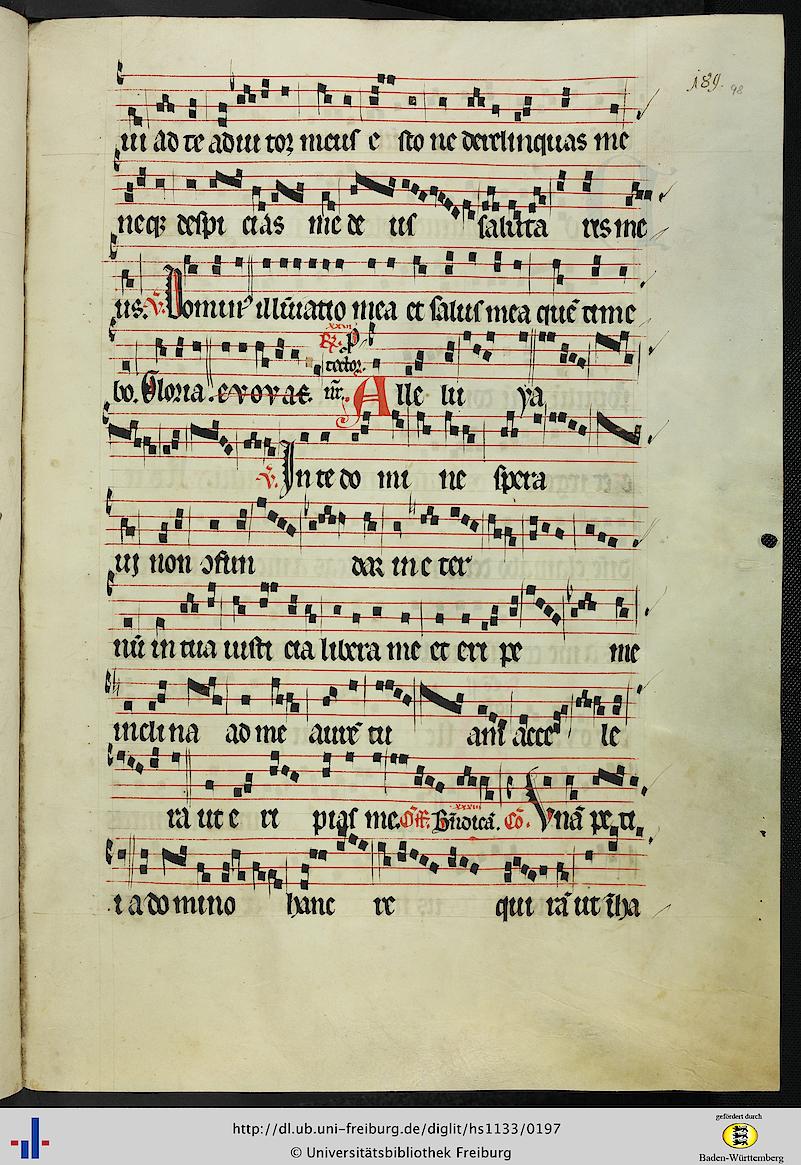 189. 98
ui ad te adiutor meus esto ne derelinquas me
neq; despicias me deus salutaris me
us. V. Domin⁹ illūinatio mea et salus mea quē time
xxvi
R. P
tector.
bo. Gloria. evovae. Alleluya
V. In te domine spera
ui non ɔfundar in eter
nū in tua iusticia libera me et eripe me
inclina ad me aurē tuam accele
xxxiii
ra ut eripias me. Off. Bn̄dicā. Cō. Unā peti
i a domino hanc requirā ut īha
http://dl.ub.uni-freiburg.de/diglit/hs1133/0197
© Universitätsbibliothek Freiburg
gefördert durch
Baden-Württemberg